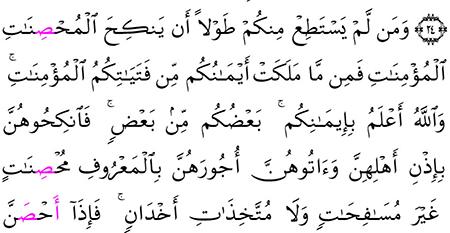 ﴿٢٤﴾ وَمَن لَّمْ يَسْتَطِعْ مِنكُمْ طَوْلاً أَن يَنكِحَ الْمُحْصِنَٰتِ
الْمُؤْمِنَٰتِ فَمِن مَّا مَلَكَتْ أَيْمَٰنُكُم مِّن فَتَيَٰتِكُمُ الْمُؤْمِنَٰتِ ۚ
وَاللَّهُ أَعْلَمُ بِإِيمَٰنِكُم ۚ بَعْضُكُم مِّنۢ بَعْضٍ ۚ فَانكِحُوهُنَّ
بِإِذْنِ أَهْلِهِنَّ وَءَاتُوهُنَّ أُجُورَهُنَّ بِالْمَعْرُوفِ مُحْصِنَٰتٍ
غَيْرَ مُسَٰفِحَٰتٍ وَلَا مُتَّخِذَٰتِ أَخْدَانٍ ۚ فَإِذَا أَحْصَنَّ